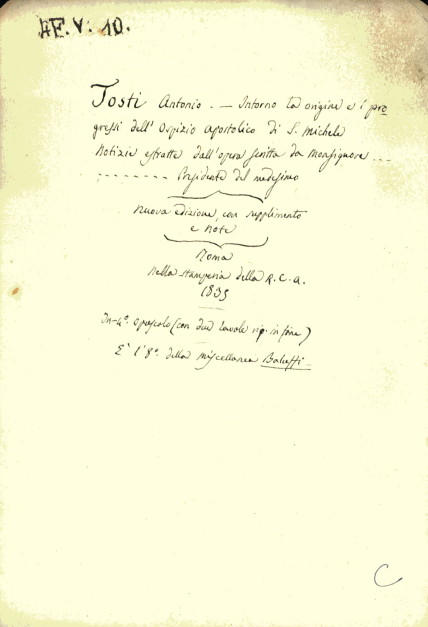 4E.V.10.
Tosti Antonio. — Intorno la origine e i pro=
gressi dell'Ospizio Apostolico di S. Michele
Notizie estratte dall'opera scritta da Monsignore ...
- - - - - - - - Presidente del medesimo
Nuova edizione, con supplimento
e Note
Roma
Nella stamperia della R.C.A.
1835
In-4°. Opuscolo (con due tavole rip. in fine)
È l'8°. della Miscellanea Baluffi
C